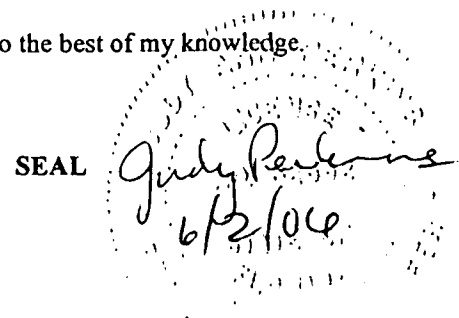 o the best of my knowledge.
SEAL Judy Perkins
6/2/06